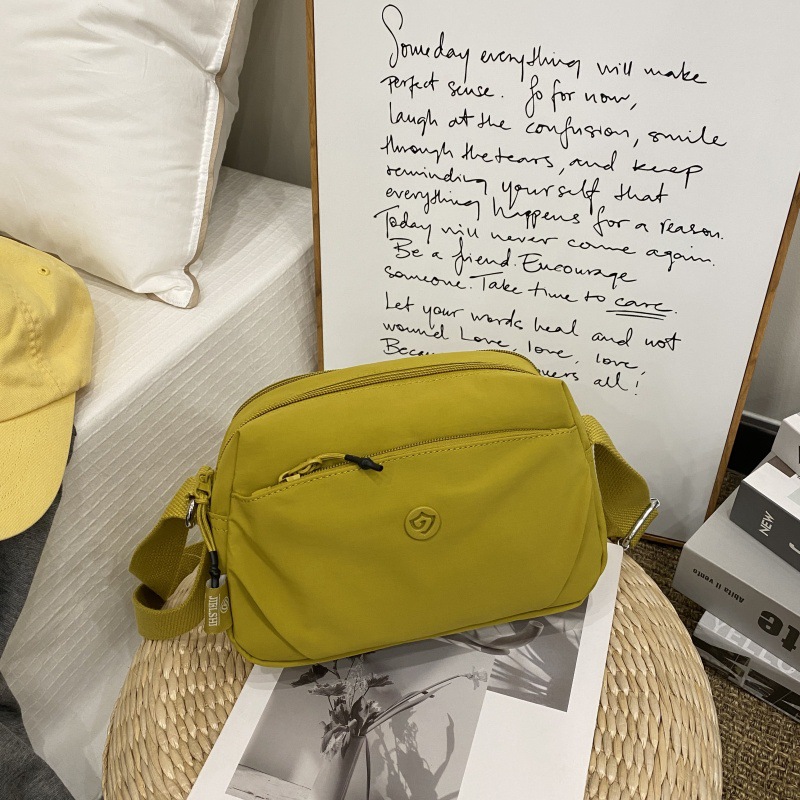 Someday everything will make
perfect sense. So for now,
laugh at the confusion, smile
through the tears, and keep
reminding yourself that
everything happens for a reason.
Today will never come again.
Be a friend. Encourage
someone. Take time to care.
Let your words heal and not
wound Love, love, love,
all!
JTHLSTHJ
NEW
Abita il vento
te
YELLOW